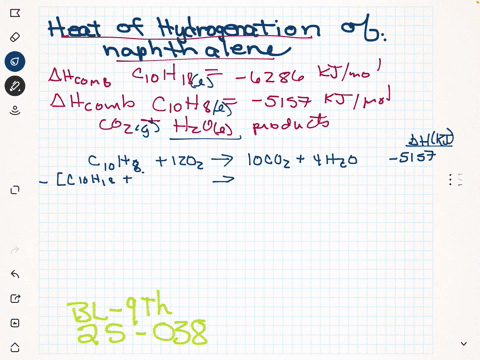 Heat of Hydrogenation of
naphthalene
ΔHcomb C10H18(l) = -6286 KJ/mol
ΔHcomb C10H8(s) = -5157 KJ/mol
CO2(g) H2O(l) products
ΔH(KJ)
C10H8 + 12O2 → 10CO2 + 4H2O -5157
- [C10H18 + →
BL-9Th
25-038